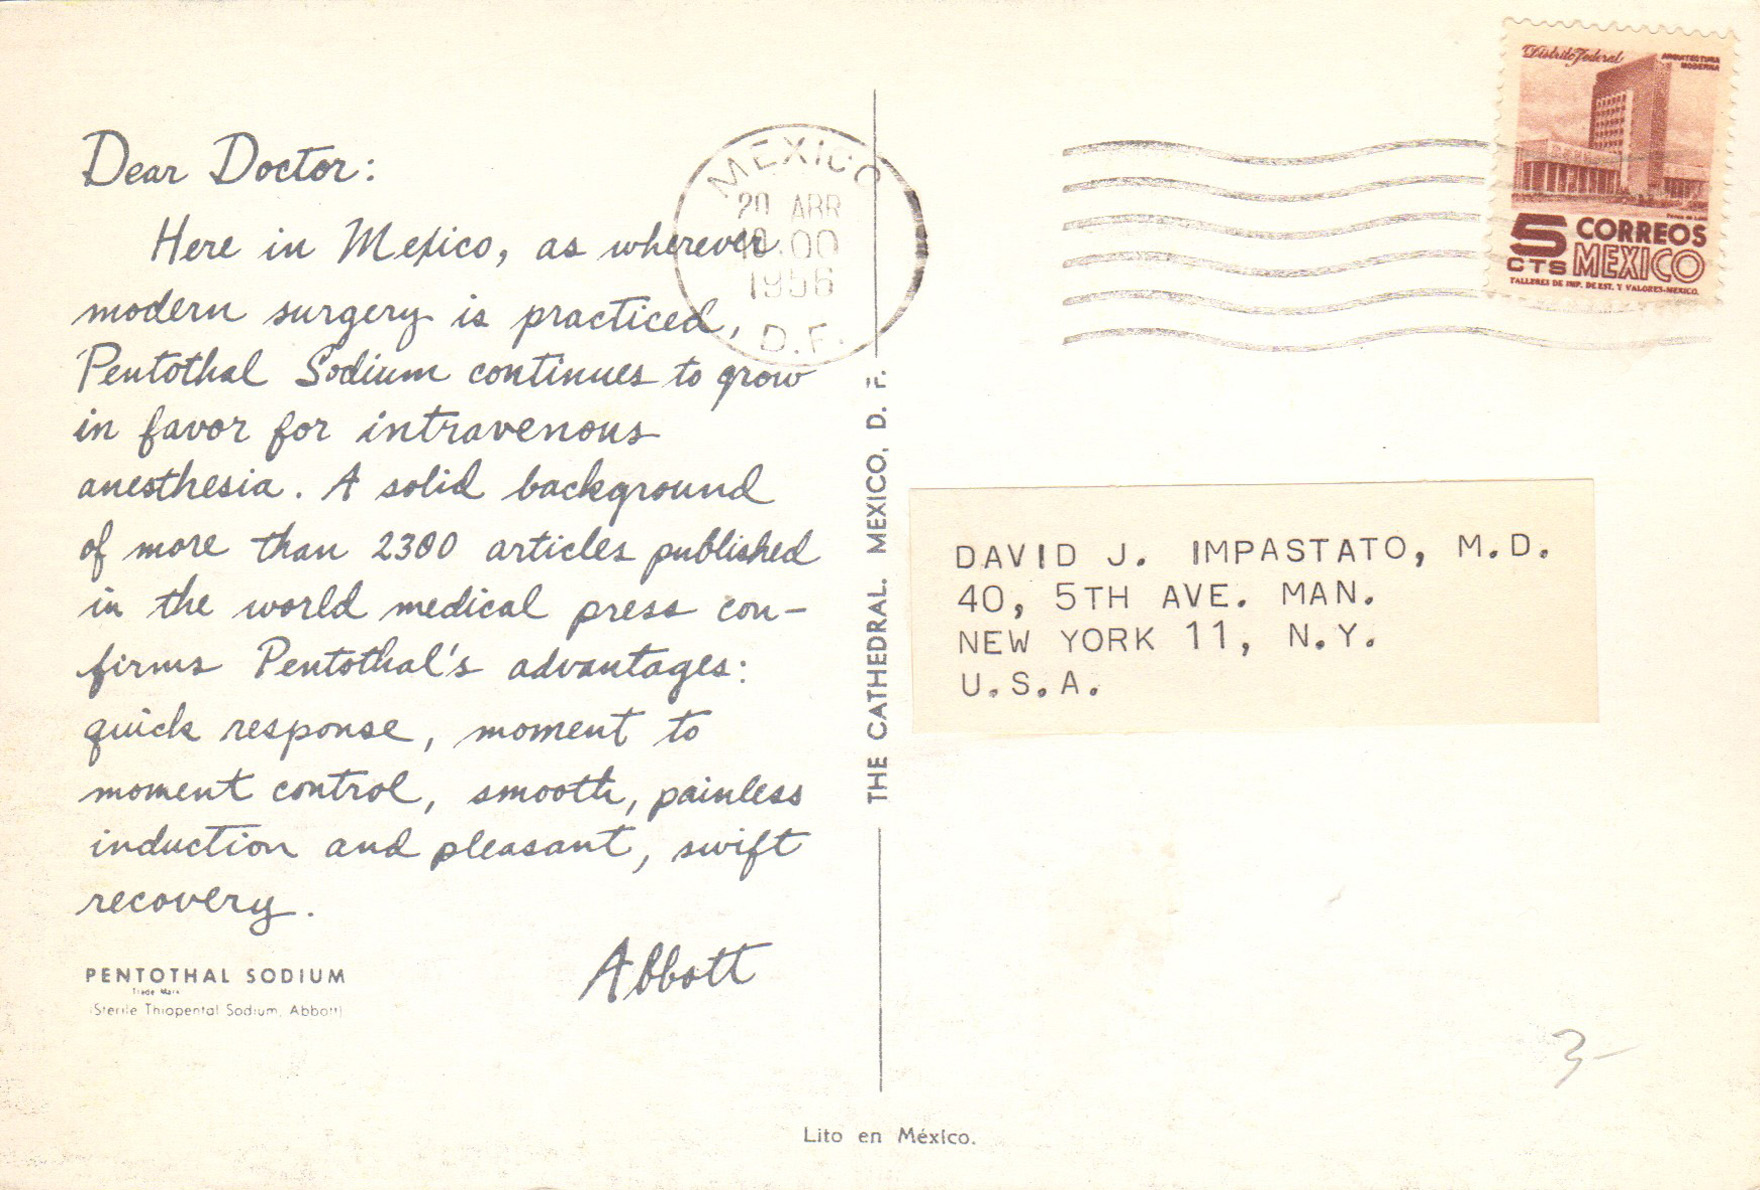 Dear Doctor:
Here in Mexico, as wherever
modern surgery is practiced,
Pentothal Sodium continues to grow
in favor for intravenous
anesthesia. A solid background
of more than 2300 articles published
in the world medical press con-
firms Pentothal's advantages:
quick response, moment to
moment control, smooth, painless
induction and pleasant, swift
recovery.
Abbott
PENTOTHAL SODIUM
Trade Mark
(Sterile Thiopental Sodium, Abbott)
THE CATHEDRAL. MEXICO, D. F.
MEXICO
20 ABR
1956
D.F.
Distrito Federal
ARQUITECTURA
MODERNA
5 CTS
CORREOS
MEXICO
TALLERES DE IMP. DE EST. Y VALORES-MEXICO.
DAVID J. IMPASTATO, M.D.
40, 5TH AVE. MAN.
NEW YORK 11, N.Y.
U.S.A.
3-
Lito en México.